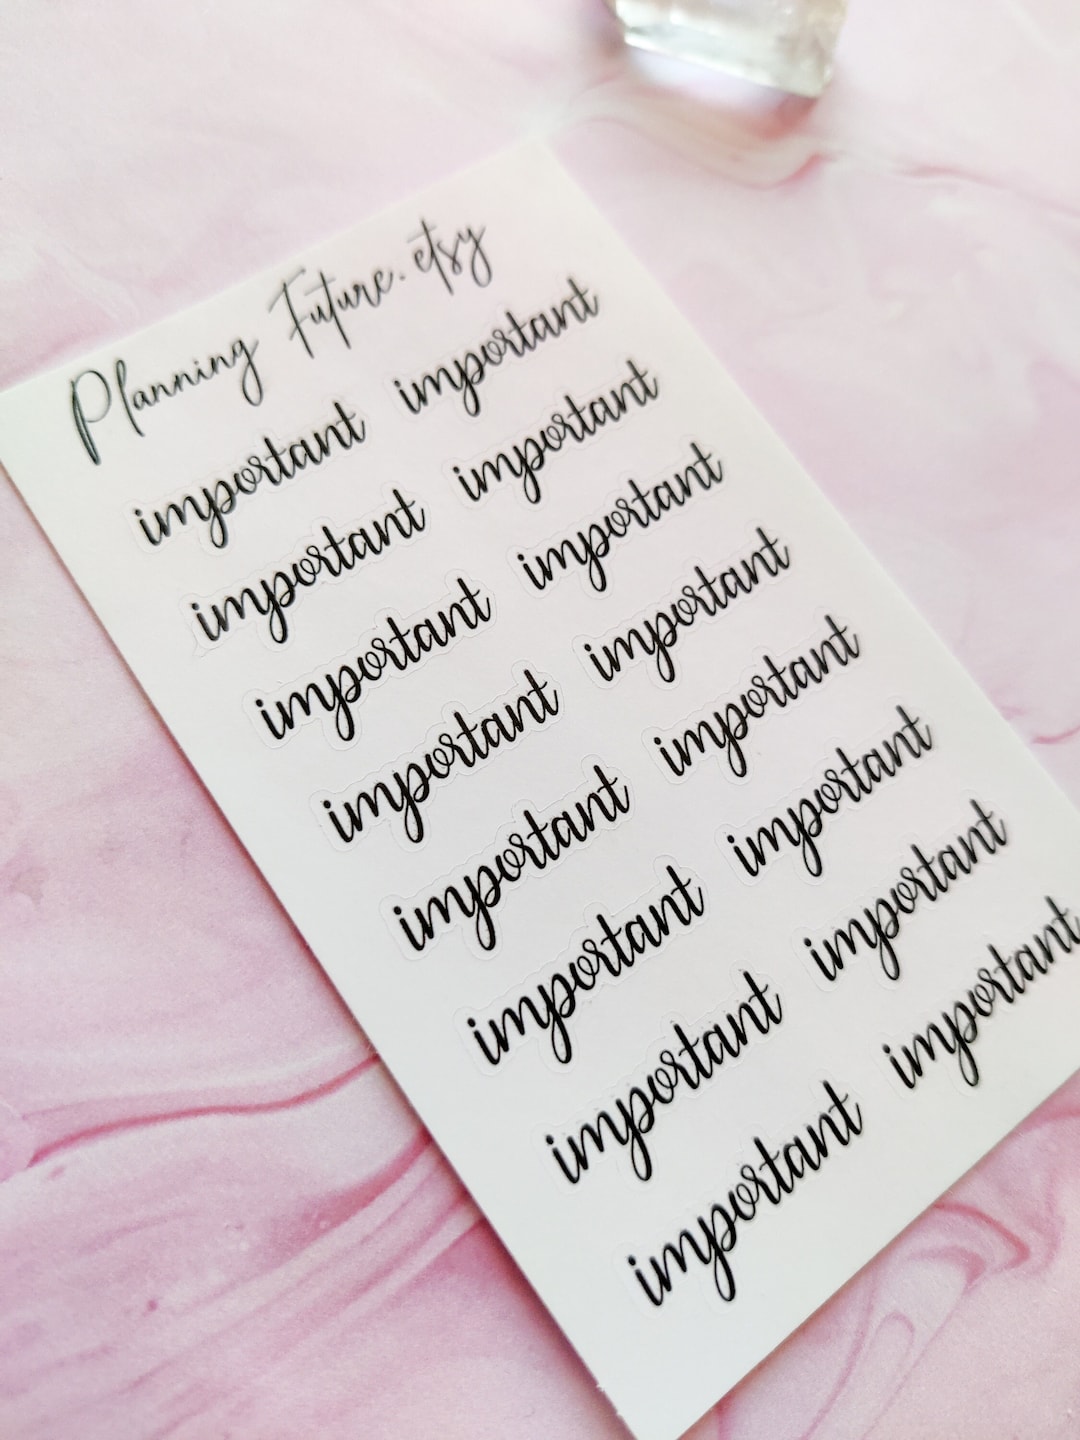 Planning Future.etsy
important important
important important
important important
important important
important important
important important
important important
important important